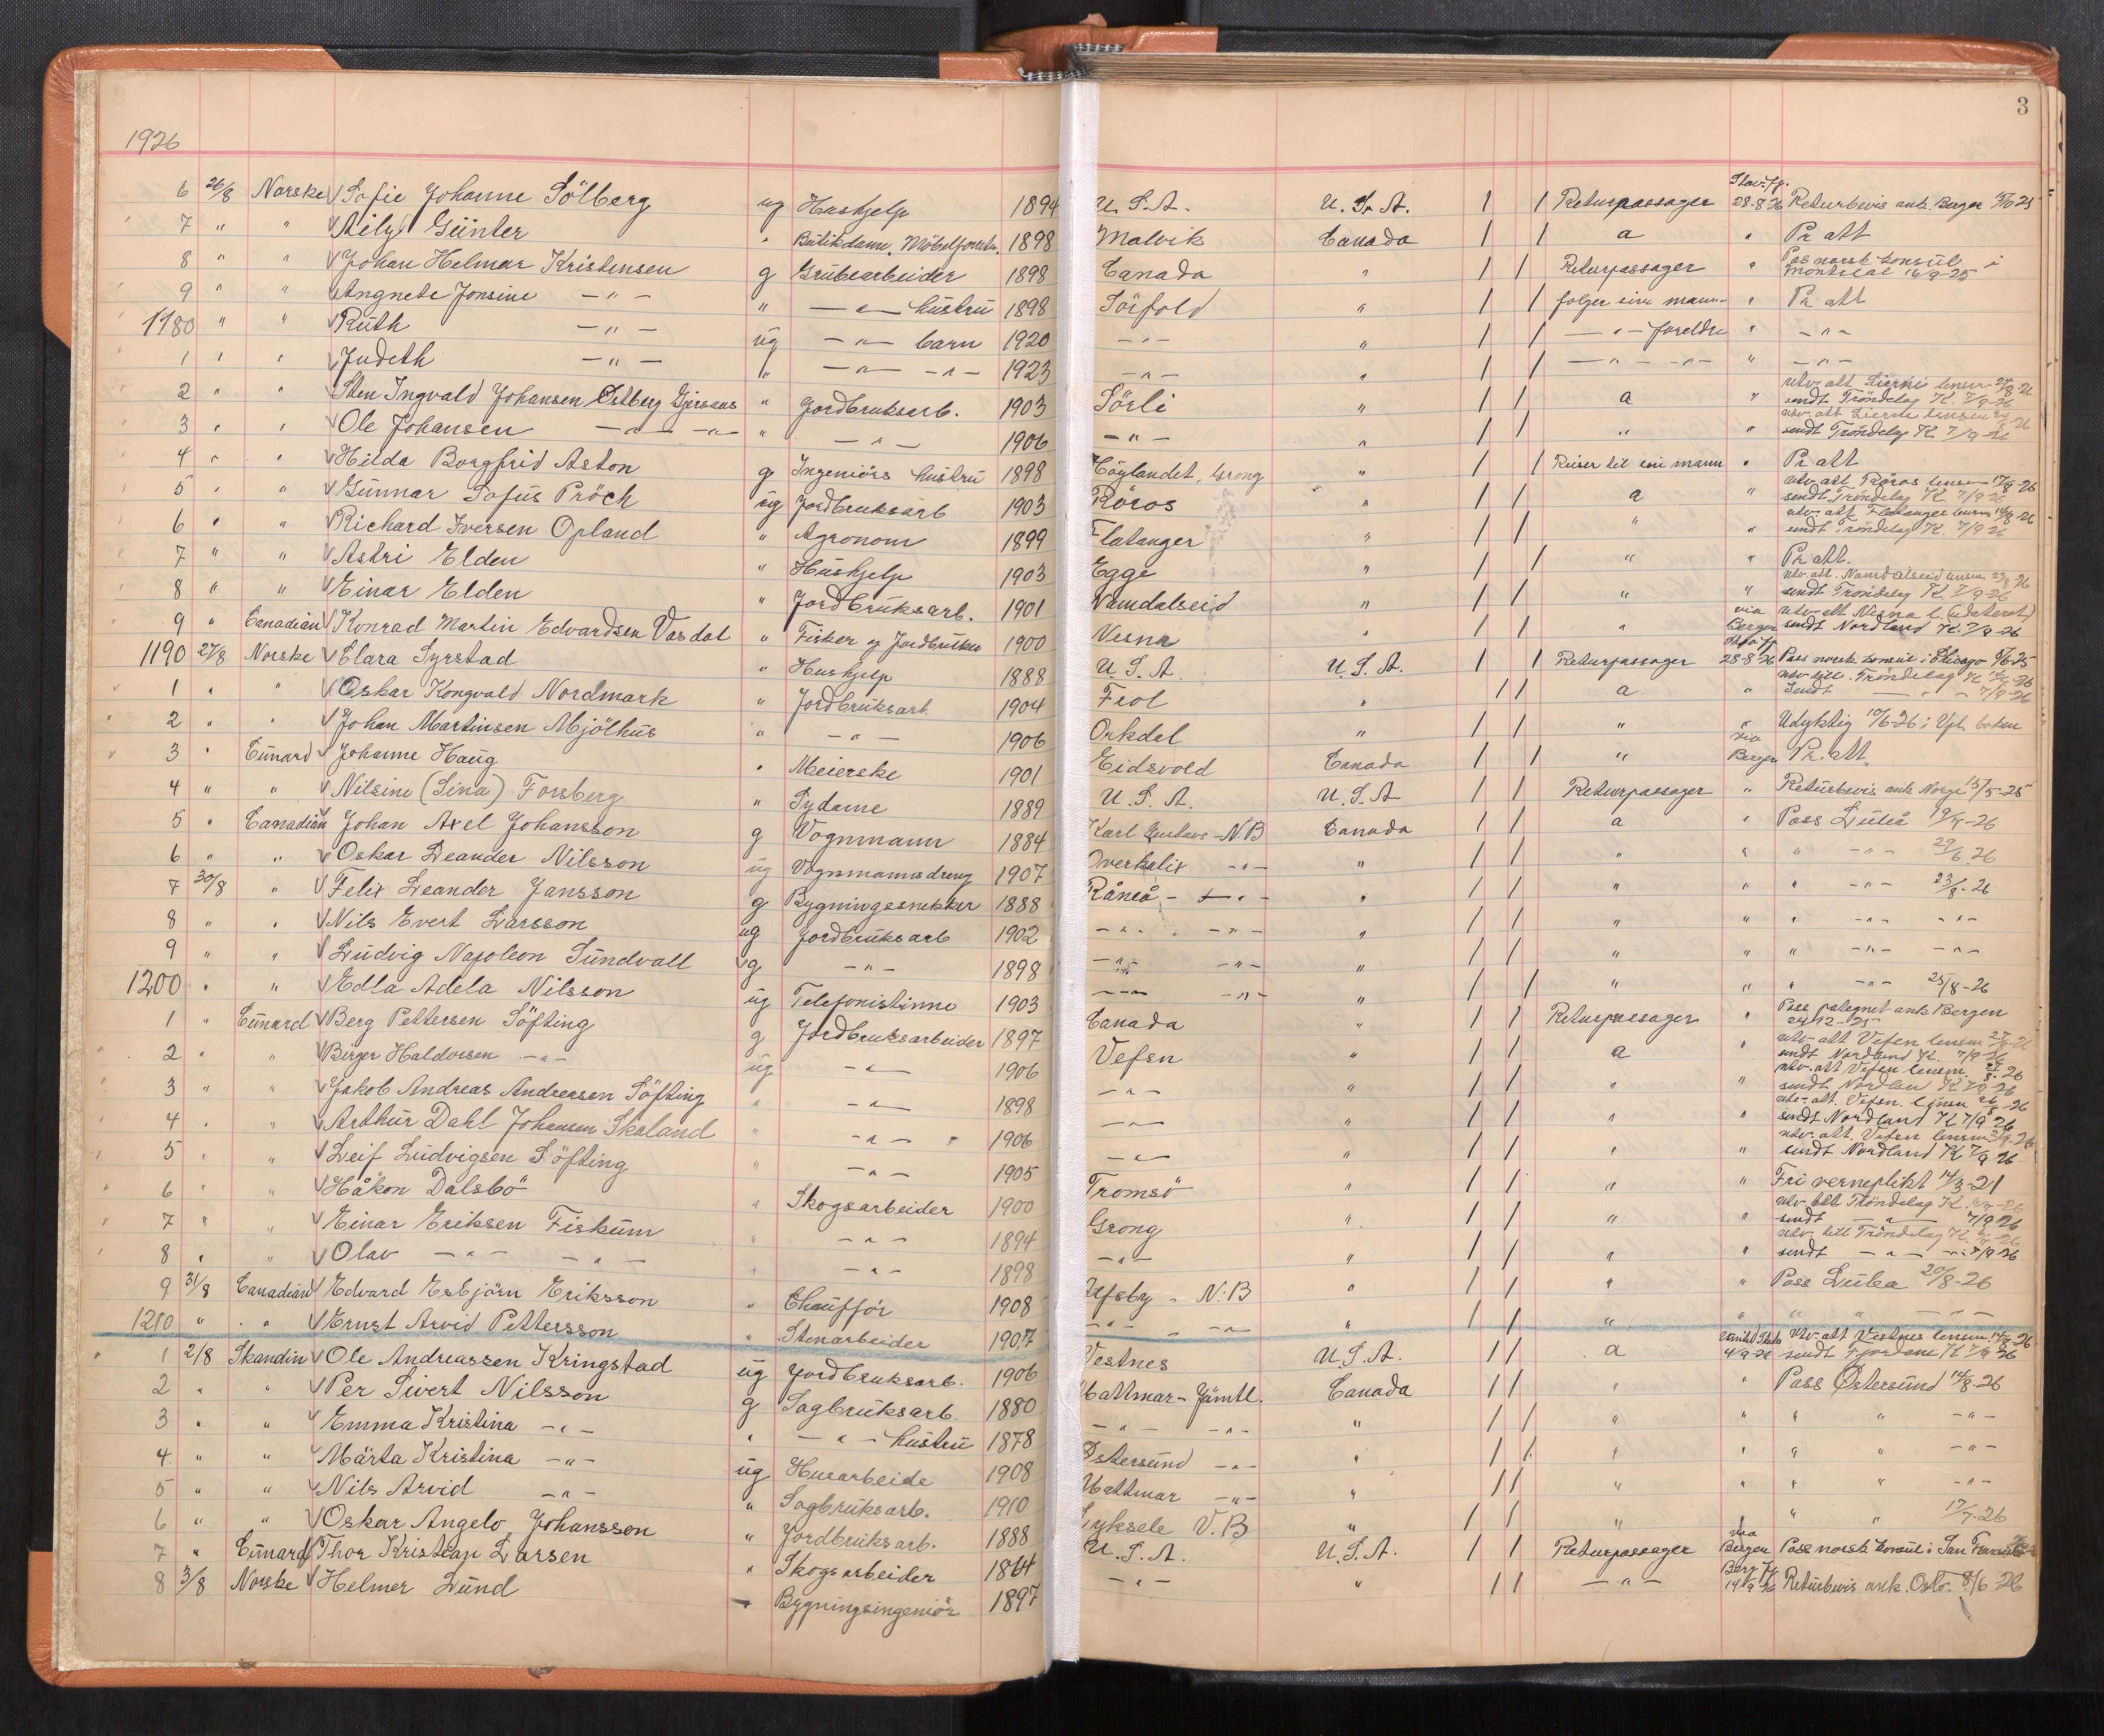 3
1926
6 26/8 Norske √ Sofie Johanne Sölberg ug Hushjelp 1894 U.S.A. U.S.A. / / Returpassager 28-8-26 Returbevis ank. Bergen 15/10-25
7 " " √ Günter " Möbelforretn. 1898 Malvik Canada / / a " Pr att
8 " " √ Johan Helmer Kristensen g Grubearbeider 1898 Canada " / / Returpassager " Pas norsk konsul i Montreal 16/9-25
9 " " √ Angnete Jonsine —"— " —"— hustru 1898 Sörfold " / / følger sin mann " Pr att
1180 " " √ Ruth —"— ug —"— barn 1920 —"— " / / —"— foreldre " —"—
1 " " √ Judith —"— " —"— —"— 1923 —"— " / / —"— —"— " —"—
2 " " √ Sten Ingvald Johansen Östberg Gjersaas " Jordbruksarb. 1903 Sörli " / / a " utv. att Lierne lensm 27/8-26 sendt Tröndelag K. 7/9-26
3 " " √ Ole Johansen —"— —"— " —"— 1906 —"— " / / " " utv. att Lierne lensm sendt Tröndelag K 7/9-26
4 " " √ Hilda Borgfrid Aston g Ingeniörs hustru 1898 Höylandet, Grong " / / Reiser til sin mann " Pr att
5 " " √ Gunnar Sofus Pröch ug Jordbruksarb 1903 Röros " / / a " utv. att Röros lensm 17/8-26 sendt Tröndelag K 7/9-26
6 " " √ Richard Iversen Opland " Agronom 1899 Flatanger " / / " " utv. att Flatanger lensm 14/8-26 sendt Tröndelag K 7/9-26
7 " " √ Astri Elden " Hushjelp 1903 Egge " / / " " Pr att.
8 " " √ Einar Elden " Jordbruksarb. 1901 Namdalseid " / / " " utv. att. Namdalseid lensm 23/8-26 sendt Tröndelag K 7/9-26
9 " Canadian √ Konrad Martin Edvardsen Vasdal " Fisker og Jordbruker 1900 Nesna " / / " via Bergen utv. att Nesna l. (udatert) sendt Nordland K. 7/9-26
1190 27/8 Norske √ Clara Syrstad " Hushjelp 1888 U.S.A. U.S.A. / / Returpassager 28-8-26 Pass norsk konsul i Chicago 5/6-25
1 " " √ Oskar Kongvald Nordmark " Jordbruksarb 1904 Frol " / / a " utv. till. Tröndelag K 26 Sendt —"— 7/9-26
2 " " √ Johan Martinsen Mjölhus " —"— 1906 Orkdal " / / " " Udyktig 10/6-26 i Vpl. boken
3 " Cunard √ Johanne Haug " Meierske 1901 Eidsvold Canada / / " via Bergen Pr. att.
4 " " √ Nilsine (Sina) Forsberg " Sydame 1889 U.S.A. U.S.A. / / Returpassager " Returbevis ank Norge 13/5-25
5 " Canadian √ Johan Axel Johansson g Vognmann 1884 Karl Gustavs - N.B Canada / / a " Pass Luleå 19/7-26
6 " " √ Oskar Leander Nilsson ug Vognmannsdreng 1907 Överkalix —"— " / / " " " —"— 29/6 26
7 30/8 " √ Felix Leander Jansson g Bygningssnekker 1888 Råneå - —"— " / / " " " —"— 23/8-26
8 " " √ Nils Evert Larsson ug Jordbruksarb 1902 —"— —"— " / / " " " —"— —"—
9 " " √ Ludvig Napoleon Sundvall ug —"— 1898 —"— —"— " / / " " " —"— —"—
1200 " " √ Edla Adela Nilsson ug Telefonistinne 1903 —"— —"— " / / " " " —"— 25/8-26
1 " Cunard √ Berg Pettersen Söfting g Jordbruksarbeider 1897 Canada " / / Returpassager " Pass pategnet ank Bergen 24-12-25
2 " " √ Birger Haldorsen —"— ug —"— 1906 Vefsn " / / a " utv. att Vefsn lensm sendt Nordland K. 7/9-26
3 " " √ Jakob Andreas Andreasen Söfting " —"— 1898 —"— " / / " " utv. att Vefsn lensm. sendt Nordlan K. 7/9-26
4 " " √ Arthur Dahl Johansen Skaland " —"— 1906 —"— " / / " " utv. att. Vefsn lensm 26/8-26 sendt Nordland K 7/9 26
5 " " √ Leif Ludvigsen Söfting " —"— 1905 —"— " / / " " utv. att. Vefsn lensm sendt Nordland K 7/9 26
6 " " √ Håkon Dalsbö " Skogsarbeider 1900 Tromsö " / / " " Fri verneplikt 14/3-21
7 " " √ Einar Eriksen Fiskum " —"— 1894 Grong " / / " " utv. till Tröndelag K. sendt —"— 7/9 26
8 " " √ Olav —"— —"— " —"— 1898 —"— " / / " " utv. till Tröndelag K. sendt —"— 7/9-26
9 31/8 Canadian √ Edvard Esbjörn Eriksson " Chauffør 1908 Älfsby - N.B " / / " " Pass Lulea 20/8-26
1210 " " √ Ernst Arvid Pettersson " Stenarbeider 1907 —"— —"— " / / " " " " —"—
1 2/8 Skandin √ Ole Andreassen Kringstad ug Jordbruksarb. 1906 Vestnes U.S.A. / / a 4/9-26 utv. att Vestnes lensm 14/8-26 sendt Fjordane K 7/9 26
2 " " √ Per Sivert Nilsson g Sagbruksarb. 1880 Mattmar - Jämtl. Canada / / " " Pass Östersund 14/8-26
3 " " √ Emma Kristina —"— " —"— hustru 1878 —"— —"— " / / " " " " —"—
4 " " √ Märta Kristina —"— ug Husarbeide 1908 Östersund —"— " / / " " " " —"—
5 " " √ Nils Arvid —"— " Sagbruksarb. 1910 Mattmar —"— " / / " " " " —"—
6 " " √ Oskar Angelo Johansson " Jordbruksarb. 1888 Lyksele V.B " / / " " " 17/7-26
7 " Cunard √ Thor Kristian Larsen " Skogsarbeider 1864 U.S.A. U.S.A. / / Returpassager via Bergen Pass norsk konsul i San Francisko
8 3/8 Norske √ Helmer Lund " Bygningsingeniör 1897 —"— " / / —"— Berg.fj. 14/9 26 Returbevis ank. Oslo. 8/6 26